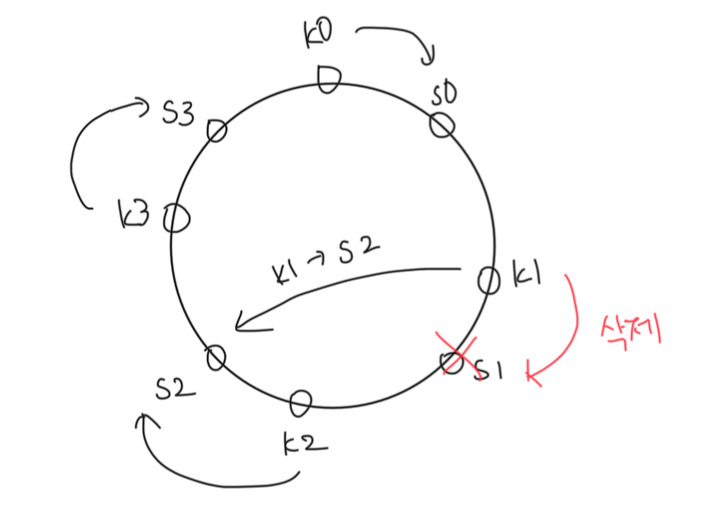 k0
s0
S3
k3
k1 → S2
k1
삭제
S1
S2
k2